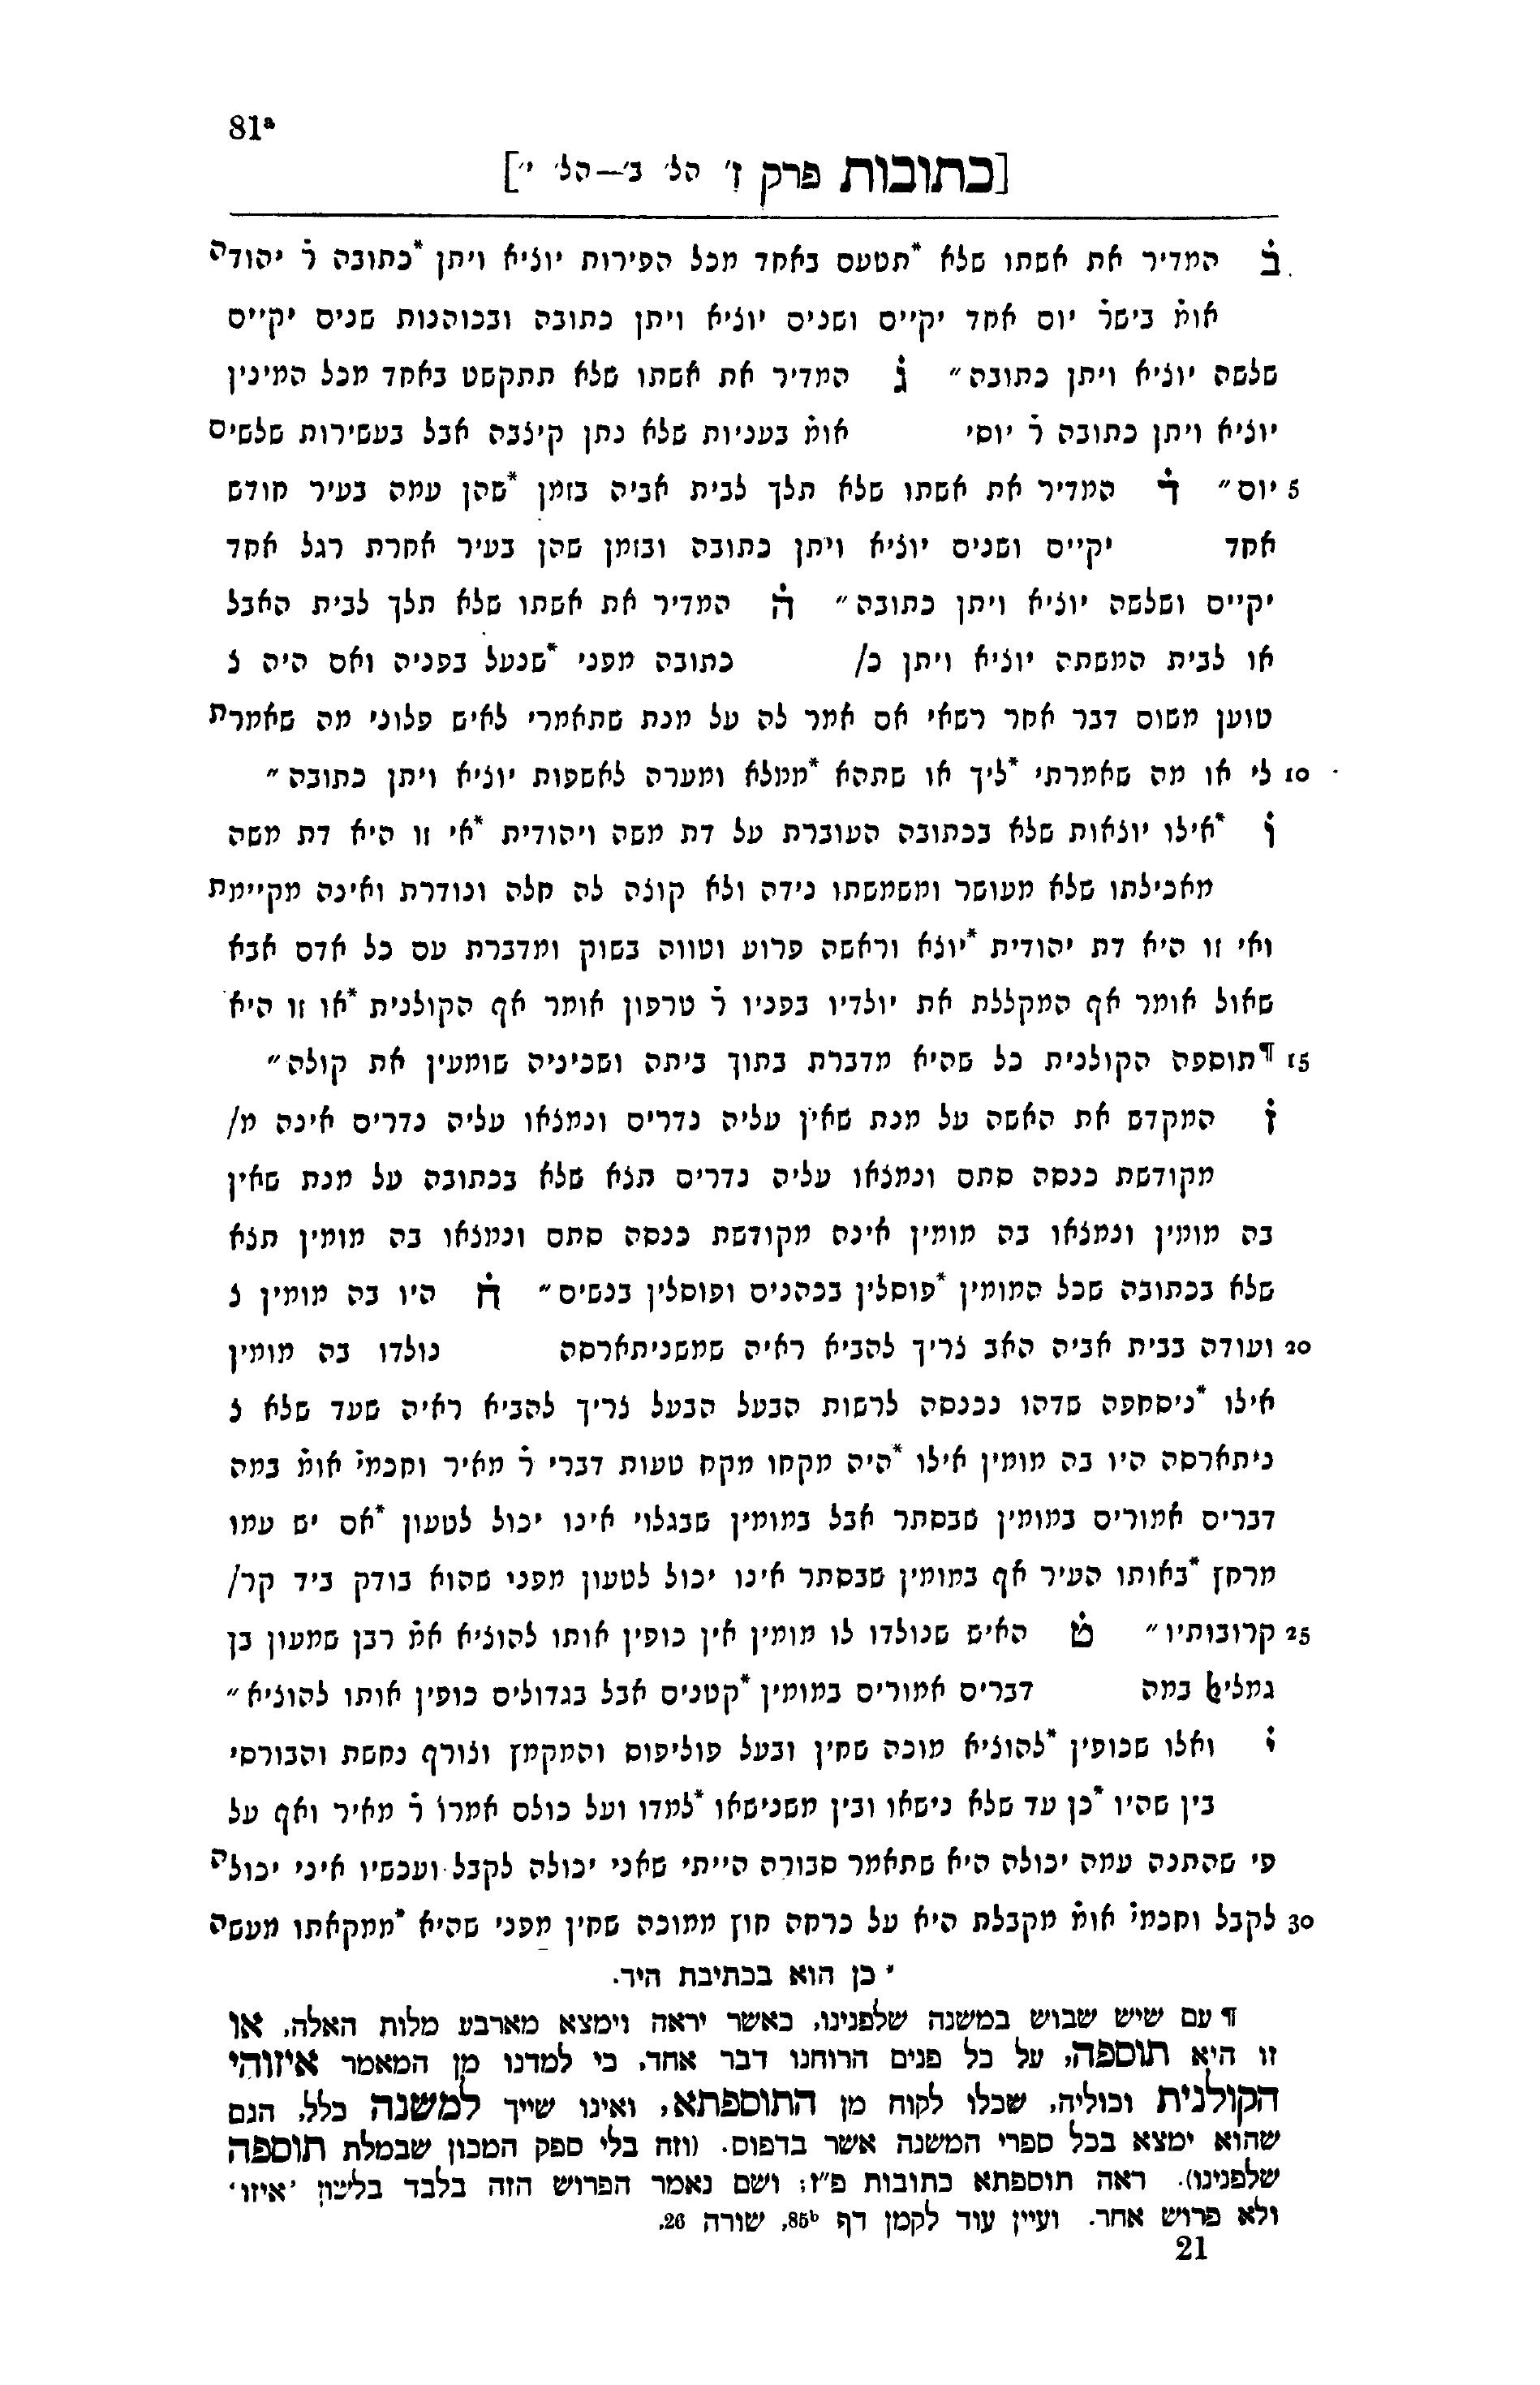 81ª
[כתובות פרק ז׳ הל׳ ב׳—הל׳ י׳]
ב̇ המדיר את אשתו שלא *תטעם באחד מכל הפירות יוציא ויתן *כתובה ר̇ יהודה
אומ̇ בישר̇ יום אחד יקיים ושנים יוציא ויתן כתובה ובכוהנות שנים יקיים
שלשה יוציא ויתן כתובה״ ג̇ המדיר את אשתו שלא תתקשט באחד מכל המינין
יוציא ויתן כתובה ר̇ יוסי אומ̇ בעניות שלא נתן קיצבה אבל בעשירות שלשים
5 יום״ ד̇ המדיר את אשתו שלא תלך לבית אביה בזמן *שהן עמה בעיר חודש
אחד יקיים ושנים יוציא ויתן כתובה ובזמן שהן בעיר אחרת רגל אחד
יקיים ושלשה יוציא ויתן כתובה״ ה̇ המדיר את אשתו שלא תלך לבית האבל
או לבית המשתה יוציא ויתן כ/ כתובה מפני *שנעל בפניה ואם היה צ
טוען משום דבר אחר רשאי אם אמר לה על מנת שתאמרי לאיש פלוני מה שאמרת
10 לי או מה שאמרתי *ליך או שתהא *ממלא ומערה לאשפות יוציא ויתן כתובה״
ו̇ *אילו יוצאות שלא בכתובה העוברת על דת משה ויהודית *אי זו היא דת משה
מאכילתו שלא מעושר ומשמשתו נידה ולא קוצה לה חלה ונודרת ואינה מקיימת
ואי זו היא דת יהודית *יוצא וראשה פרוע וטווה בשוק ומדברת עם כל אדם אבא
שאול אומר אף המקללת את יולדיו בפניו ר̇ טרפון אומר אף הקולנית *או זו היא
15 ¶תוספה הקולנית כל שהיא מדברת בתוך ביתה ושכיניה שומעין את קולה״
ז̇ המקדש את האשה על מנת שאין עליה נדרים ונמצאו עליה נדרים אינה מ/
מקודשת כנסה סתם ונמצאו עליה נדרים תצא שלא בכתובה על מנת שאין
בה מומין ונמצאו בה מומין אינה מקודשת כנסה סתם ונמצאו בה מומין תצא
שלא בכתובה שכל המומין *פוסלין בכהנים ופוסלין בנשים״ ח̇ היו בה מומין צ
20 ועודה בבית אביה האב צריך להביא ראיה שמשניתארסה נולדו בה מומין
אילו *ניסחפה שדהו נכנסה לרשות הבעל הבעל צריך להביא ראיה שעד שלא צ
ניתארסה היו בה מומין אילו *היה מקחו מקח טעות דברי ר̇ מאיר וחכמי̇ אומ̇ במה
דברים אמורים במומין שבסתר אבל במומין שבגלוי אינו יכול לטעון *אם יש עמו
מרחץ *באותו העיר אף במומין שבסתר אינו יכול לטעון מפני שהוא בודק ביד קר/
25 קרובותיו״ ט̇ האיש שנולדו לו מומין אין כופין אותו להוציא אמ̇ רבן שמעון בן
גמליﭏ במה דברים אמורים במומין *קטנים אבל בגדולים כופין אותו להוציא״
י̇ ואלו שכופין *להוציא מוכה שחין ובעל פוליפוס והמקמץ וצורף נחשת והבורסי
בין שהיו *כן עד שלא נישאו ובין משנישאו *למדו ועל כולם אמרו ר̇ מאיר ואף על
פי שהתנה עמה יכולה היא שתאמר סבורה הייתי שאני יכולה לקבל ועכשיו איני יכולה
30 לקבל וחכמי̇ אומ̇ מקבלת היא על כרחה חוץ ממוכה שחין מפני שהיא *ממקאתו מעשה
* כן הוא בכתיבת היד.
¶ עם שיש שבוש במשנה שלפנינו, כאשר יראה וימצא מארבע מלות האלה, או
זו היא תוספה, על כל פנים הרוחנו דבר אחד, כי למדנו מן המאמר איזוהי
הקולנית וכוליה, שכלו לקוח מן התוספתא, ואינו שייך למשנה כלל, הגם
שהוא ימצא בכל ספרי המשנה אשר בדפוס. (וזה בלי ספק המכון שבמלת תוספה
שלפנינו). ראה תוספתא כתובות פ״ז; ושם נאמר הפרוש הזה בלבד בלשון ׳איזו׳
ולא פרוש אחר. ועיין עוד לקמן דף 85ᵇ, שורה 26.
21